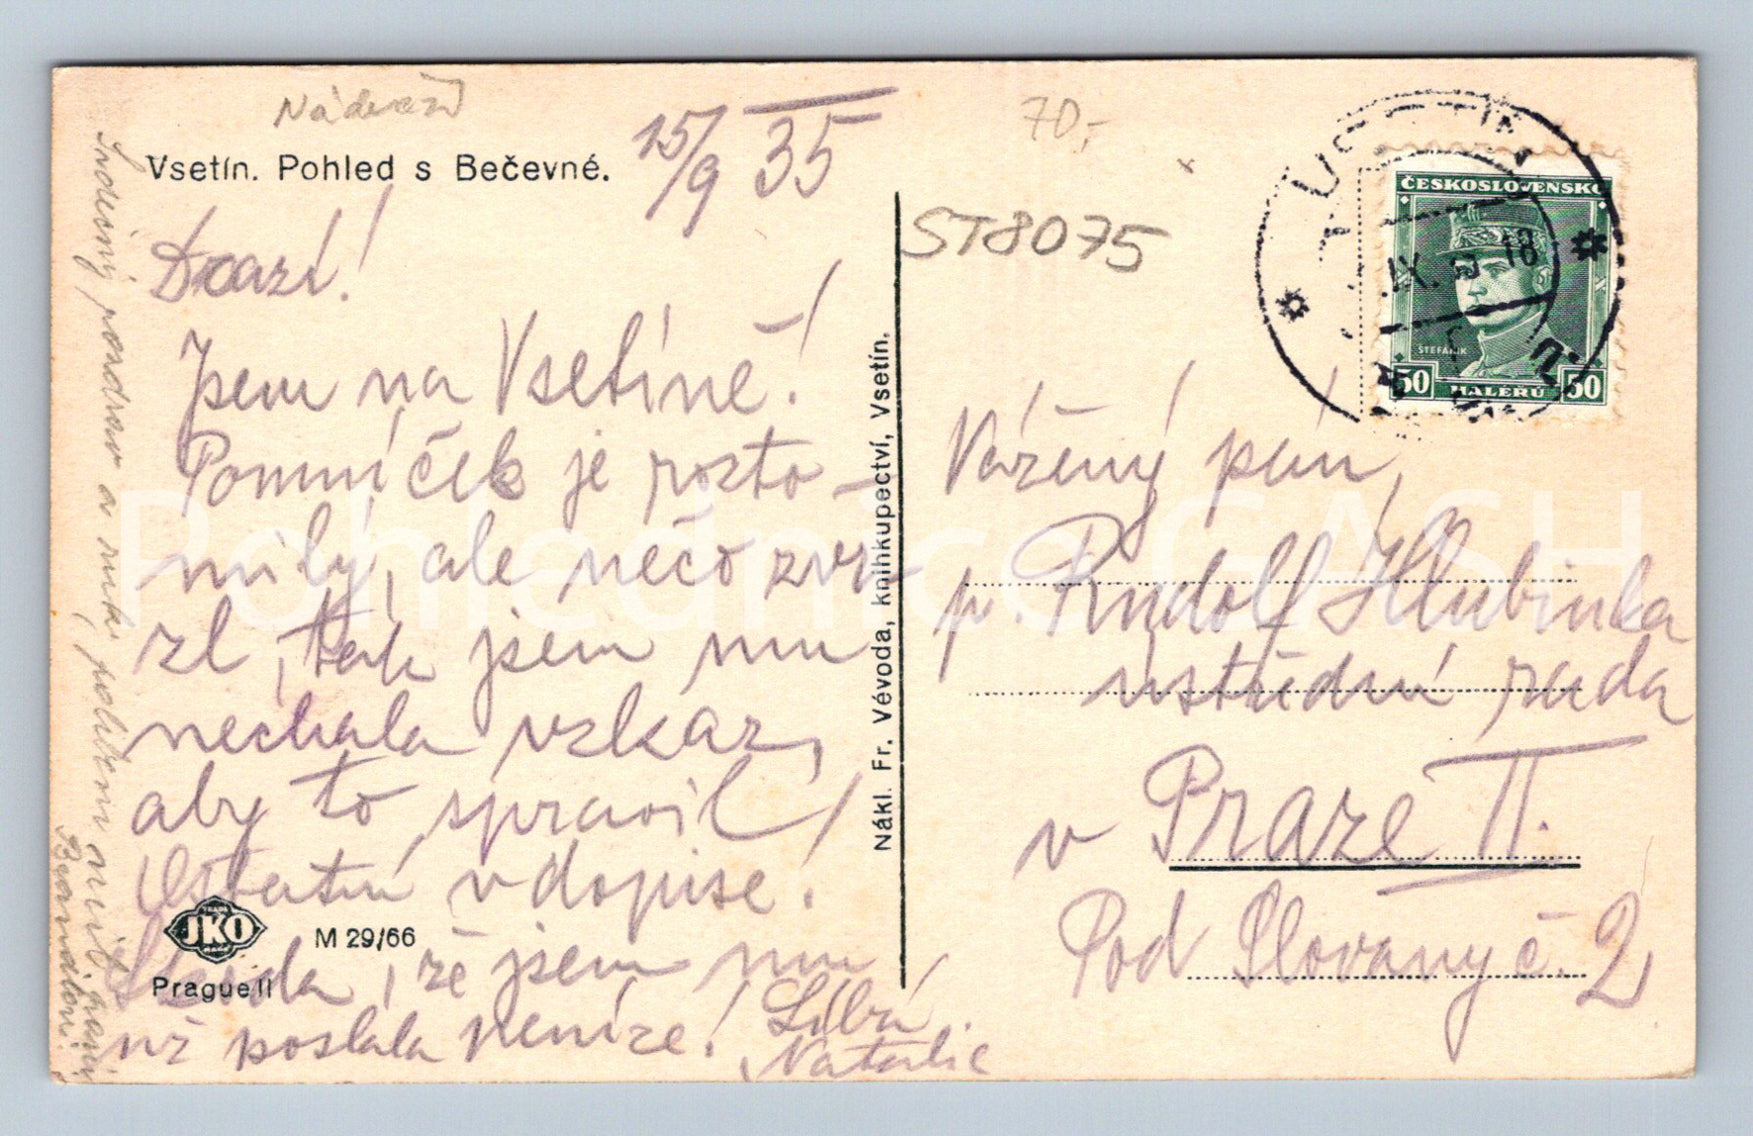 Nádraží
Vsetín. Pohled s Bečevné.
15/9 35
70,-
ST8075
Drazí!
Jsem na Vsetíně!
Pomníček je rozto-
milý, ale něco zvr
zl, tak jsem mu
nechala vzkaz,
aby to spravil!
Ostatní v dopise!
Škoda, že jsem mu
už poslala peníze!
Líbá
Natalie
Srdečný pozdrav a
JKO
M 29/66
Prague II
Nákl. Fr. Vévoda, knihkupectví, Vsetín.
ČESKOSLOVENSKO
ŠTEFÁNIK
50 HALÉŘŮ 50
IX. 18
Vážený pán,
p. Rudolf Hlubinka
ústřední rada
v Praze II.
Pod Slovany č. 2
Pohlednice GASH